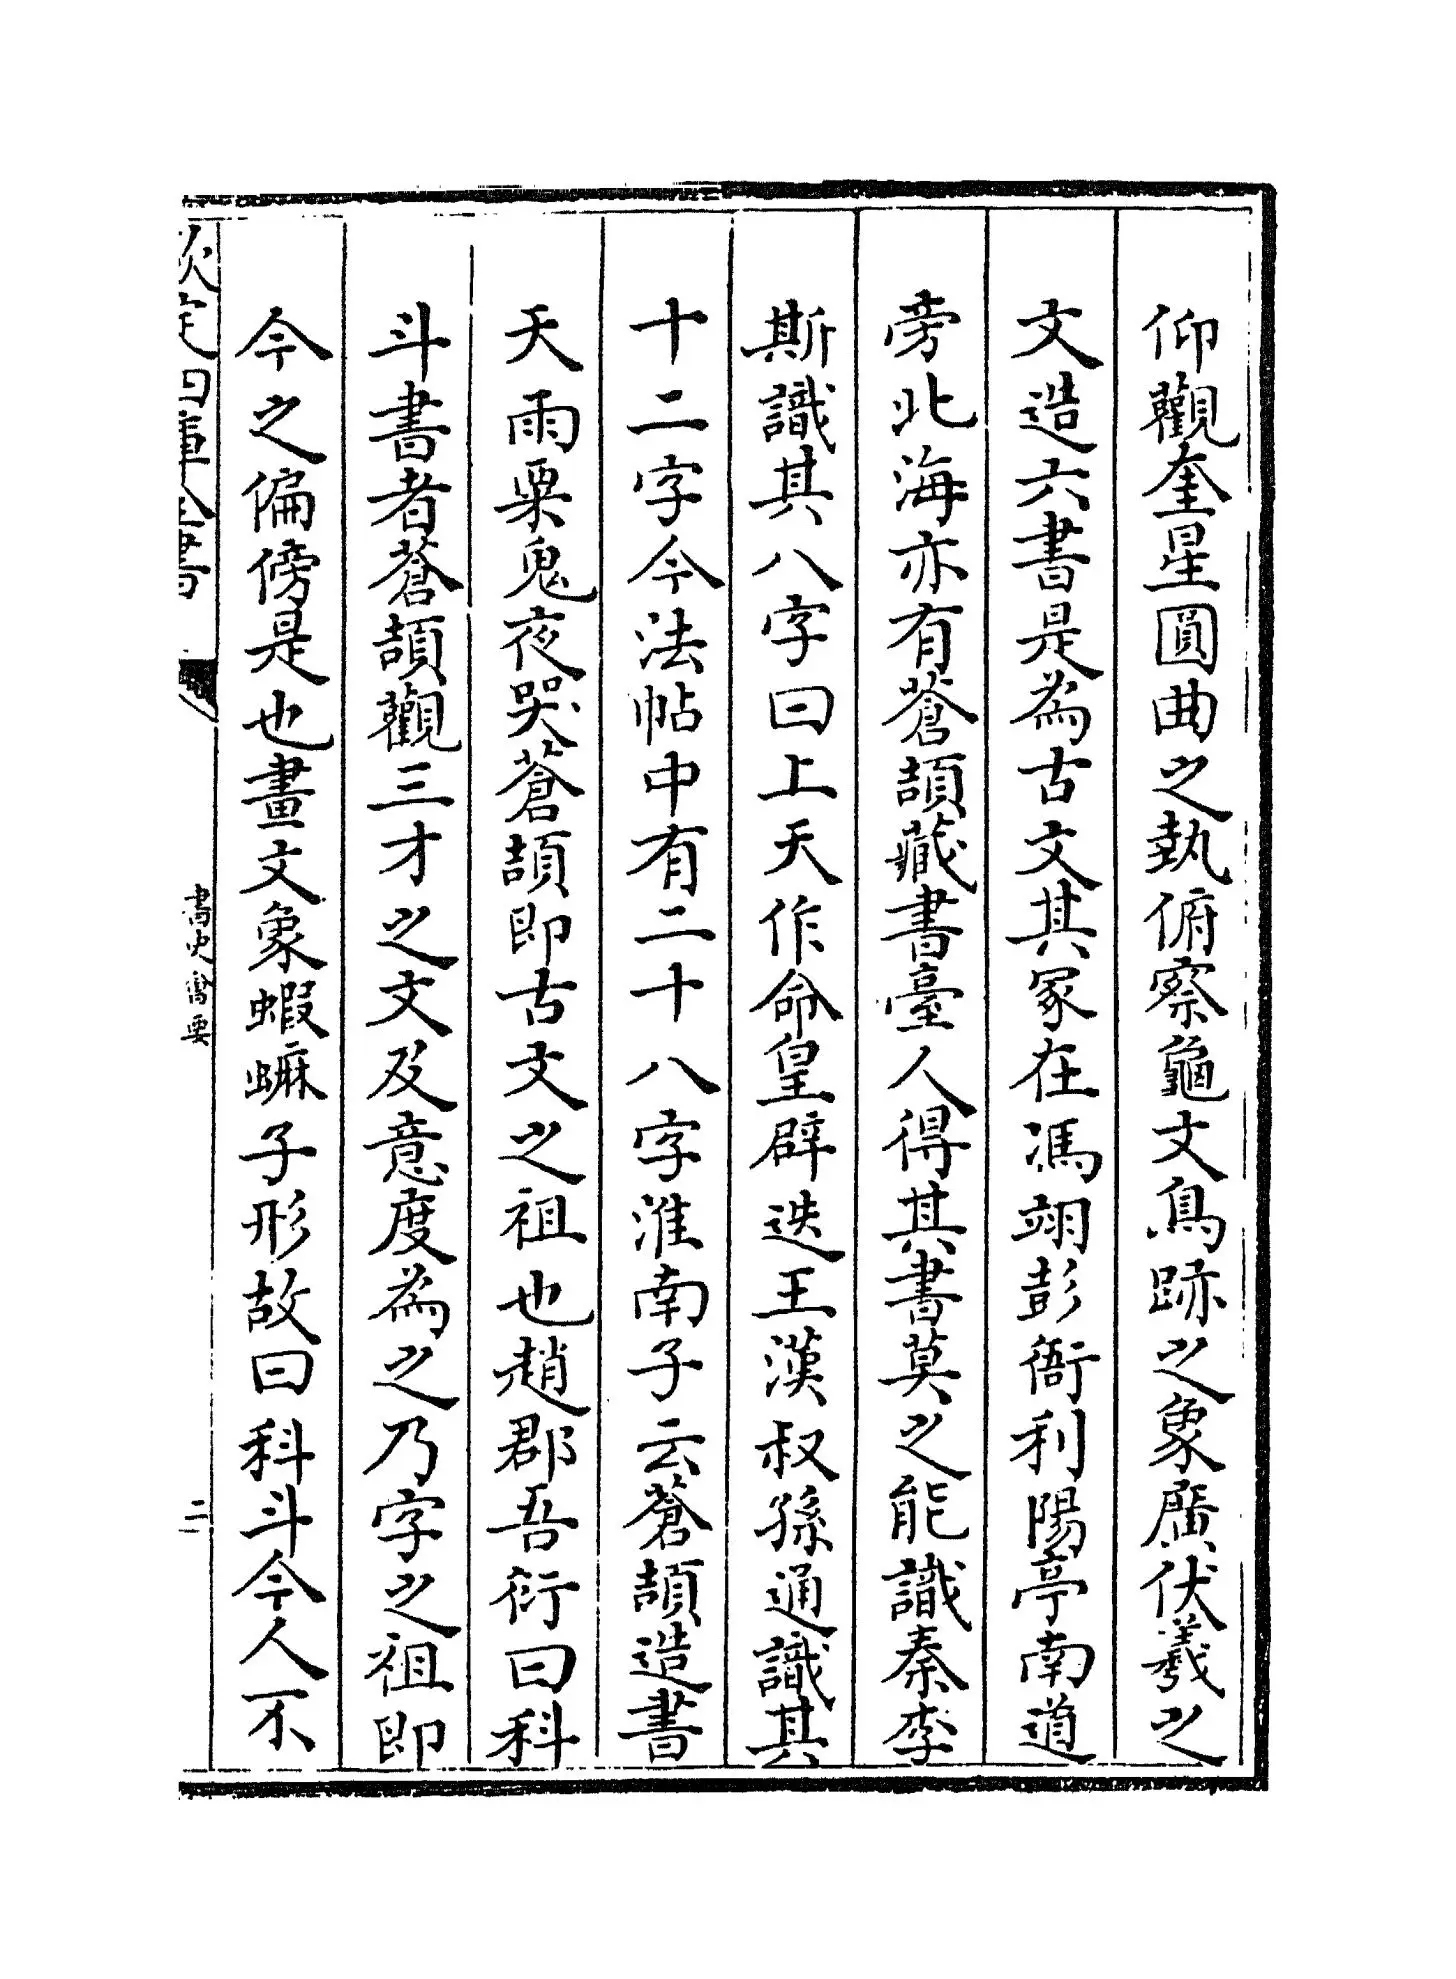 仰觀奎星圓曲之埶俯察龜文鳥跡之象廣伏羲之
文造六書是為古文其冢在馮翊彭衙利陽亭南道
旁北海亦有蒼頡藏書臺人得其書莫之能識秦李
斯識其八字曰上天作命皇辟迭王漢叔孫通識其
十二字今法帖中有二十八字淮南子云蒼頡造書
天雨粟鬼夜哭蒼頡即古文之祖也趙郡吾衍曰科
斗書者蒼頡觀三才之文及意度為之乃字之祖即
今之偏傍是也畫文象蝦蟆子形故曰科斗今人不
欽定四庫全書
書史會要
二